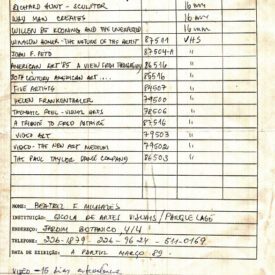 RICHARD HUNT - SCULPTOR 16 mm
WHY MAN CREATES 16 mm
WILLEM DE KOONING AND THE UNEXPECTED 16 mm
WINSLOW HOMER - THE NATURE OF THE ARTIST 87501 VHS
JOHN F. PETO 87504-A "
AMERICAN ART '85 A VIEW FROM THE 86516 "
20TH CENTURY AMERICAN ART .... 85516 "
FIVE ARTISTS 84507 "
HELEN FRANKENTHALER 79500 "
THEMATIC REEL - VISUAL ARTS 78506 "
A TRIBUTE TO 87516 "
VIDEO ART 79503 "
VIDEO - THE NEW ART MEDIUM 79502 "
THE PAUL TAYLOR DANCE COMPANY 86503 "
NOME: BEATRIZ F. MILHAZES
INSTITUIÇÃO: ESCOLA DE ARTES VISUAIS / PARQUE LAGE
ENDEREÇO: JARDIM BOTANICO, 414
TELEFONE: 226-1879 226-9624 - 511-0169
DATA DE EXIBIÇÃO: A PARTIR MARÇO 89.
VIDEO - 15 dias